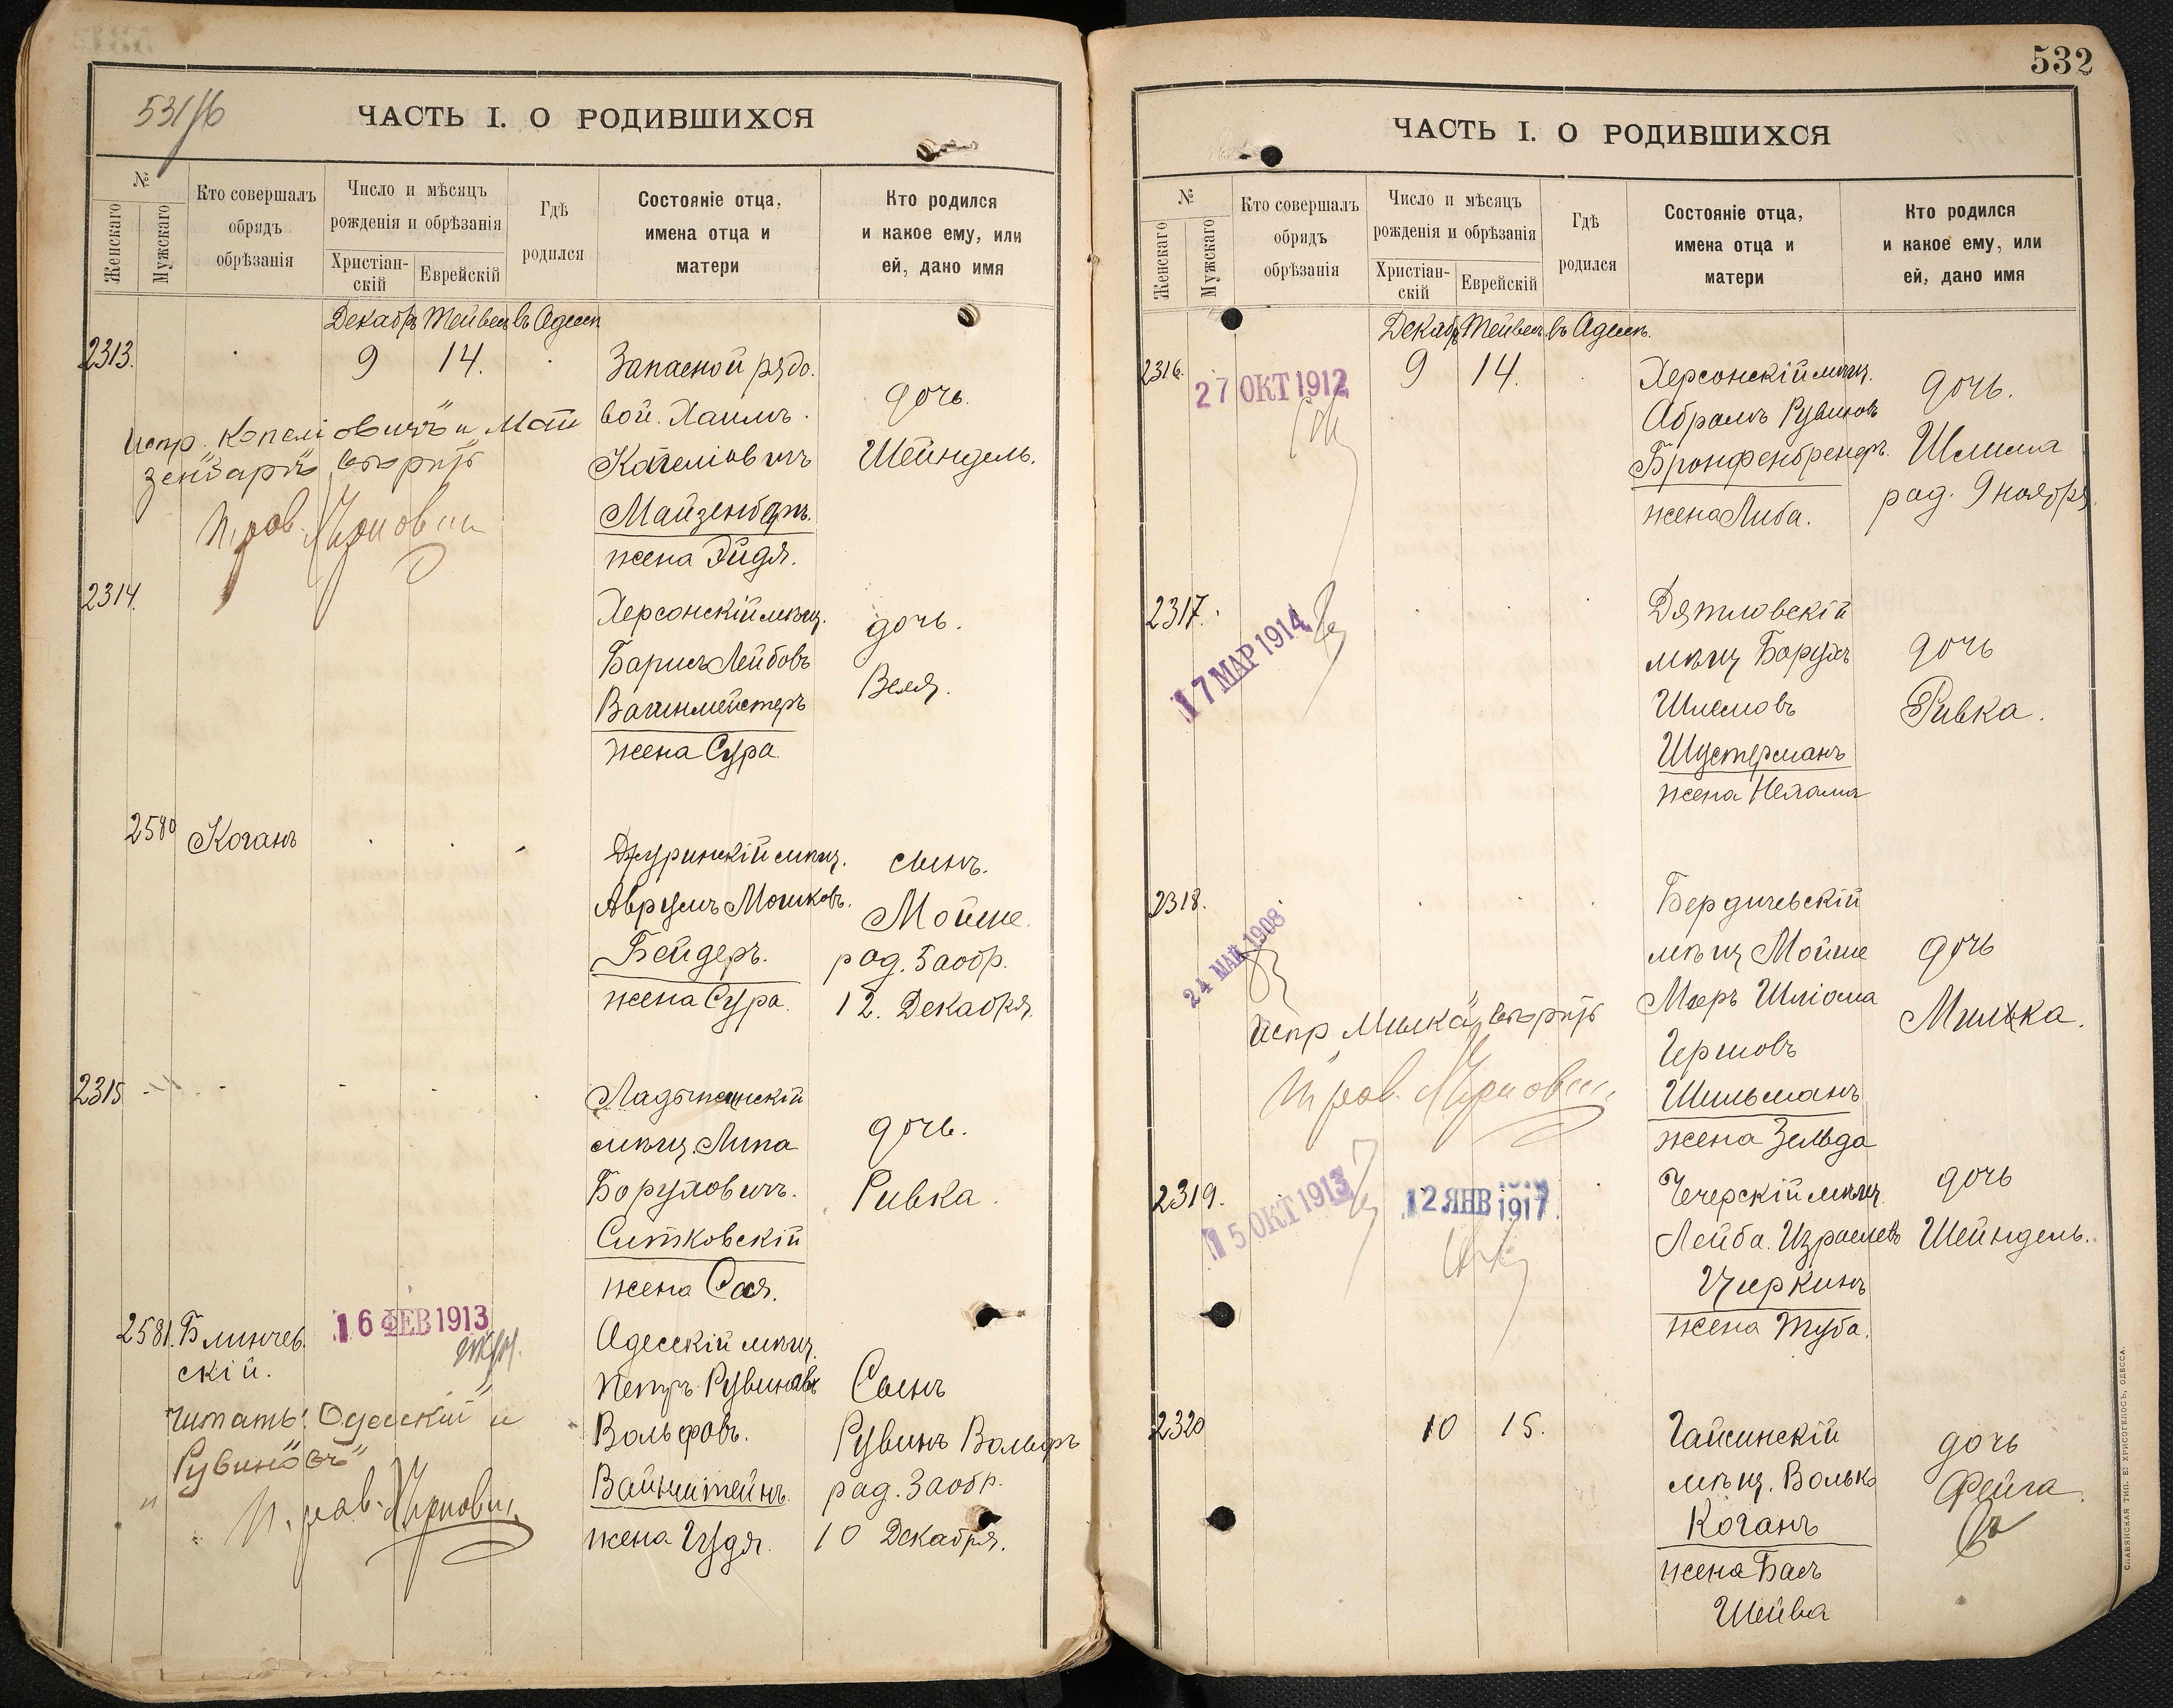 531/об
ЧАСТЬ I. О РОДИВШИХСЯ
№
Женскаго
Мужскаго
Кто совершалъ
обрядъ
обрѣзанія
Число и мѣсяцъ
рожденія и обрѣзанія
Христіан-
скій
Еврейскій
Гдѣ
родился
Состояніе отца,
имена отца и
матери
Кто родился
и какое ему, или
ей, дано имя
Декабр Тейвеш въ Одесс
2313. 9 14.
Запасной рядо
вой. Хаимъ
Копеліовичъ
Майзенбаръ.
жена Эйдя.
дочь.
Шейндель.
испр. Копеліовичъ" и Май
зенбаръ" вѣрить
2314.
Херсонскій мѣщ.
Борисъ Лейбовъ
Вагинмейстеръ
жена Сура
дочь.
Веля.
2580 Коганъ
Джуринскій мѣщ.
Аврумъ Мошковъ.
Бейдеръ.
жена Сура.
сынъ.
Мойше.
род. З а обр.
12. Декабря.
2315
Ладыжинскій
мѣщ. Липа
Боруховичъ.
Ситковскій
жена Сося.
дочь.
Ривка.
2581. Блинчев
скій.
16 ФЕВ 1913
Одесскій мѣщ.
Петръ Рувиновъ
Вольфовъ.
Вайнштейнъ.
жена Иудя.
Сынъ
Рувинъ Вольфъ
род. З а обр.
10 Декабря.
читать: Одесскій" и
Рувиновъ"
532
ЧАСТЬ I. О РОДИВШИХСЯ
№
Женскаго
Мужскаго
Кто совершалъ
обрядъ
обрѣзанія
Число и мѣсяцъ
рожденія и обрѣзанія
Христіан-
скій
Еврейскій
Гдѣ
родился
Состояніе отца,
имена отца и
матери
Кто родился
и какое ему, или
ей, дано имя
Декабр Тейвеш. въ Одесс.
2316. 9 14.
27 ОКТ 1912
Херсонскій мѣщ.
Абрамъ Рувиновъ
Бронфенбренеръ.
жена Либа.
дочь.
Шлима
род. 9 ноября.
2317.
17 МАР 1914
Дятловскій
мѣщ Борухъ
Шлемовъ
Шустерманъ
жена Нехама
дочь
Ривка.
2318.
24 МАЙ 1908
Бердичевскій
мѣщ Мойше
Меръ Шліома
Гершовъ
Шильманъ
жена Зельда
дочь
Милька.
испр Милка" вѣрить
2319.
15 ОКТ 1913
12 ЯНВ 1917
Чечерскій мѣщ.
Лейба. Израилевъ
Чиркинъ
жена Туба.
дочь
Шейндель.
2320 10 15.
Гайсинскій
мѣщ. Волько
Коганъ
жена Бася
Шейва
дочь
Фейга.
СЛАВЯНСКАЯ ТИП. Е. ХРИСОГЕЛОСЪ, ОДЕССА.